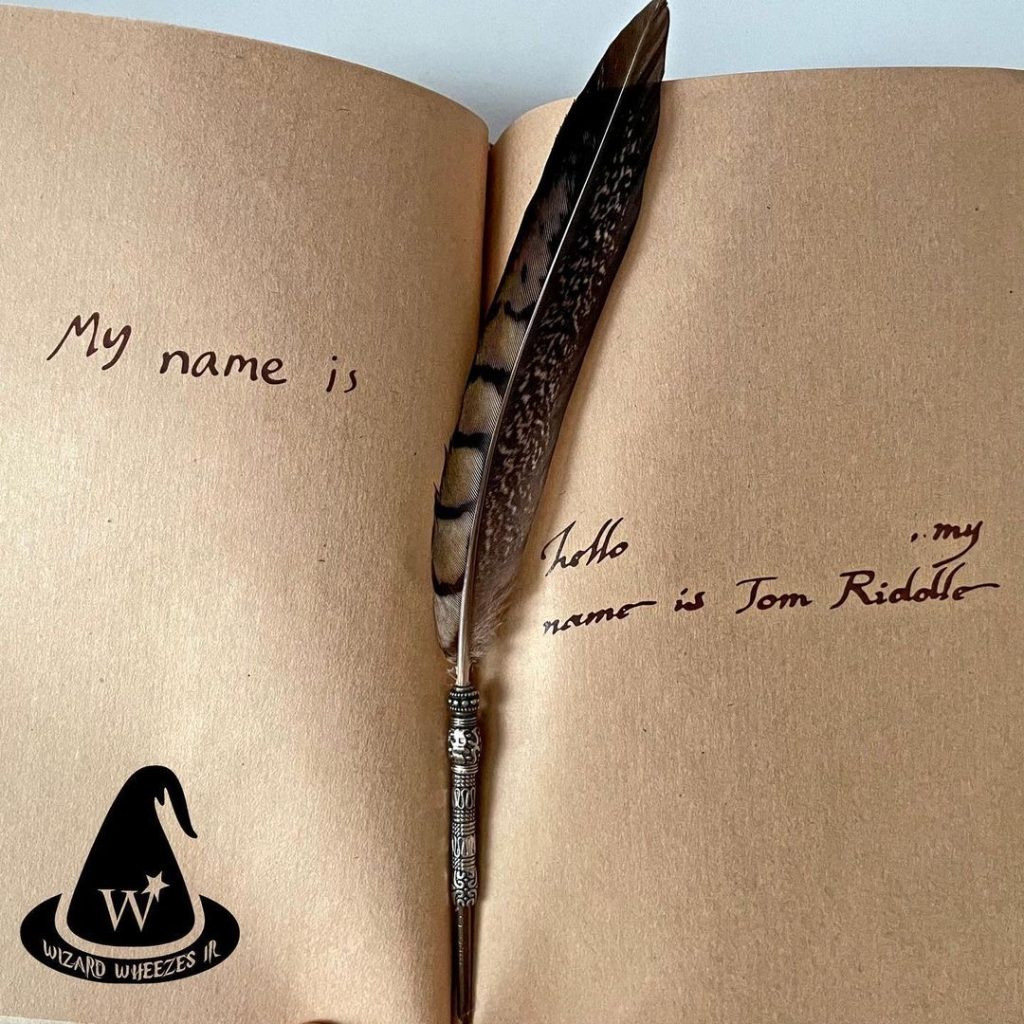 My name is
hello ..my
name is Tom Riddle
W
WIZARD WHEEZES IR